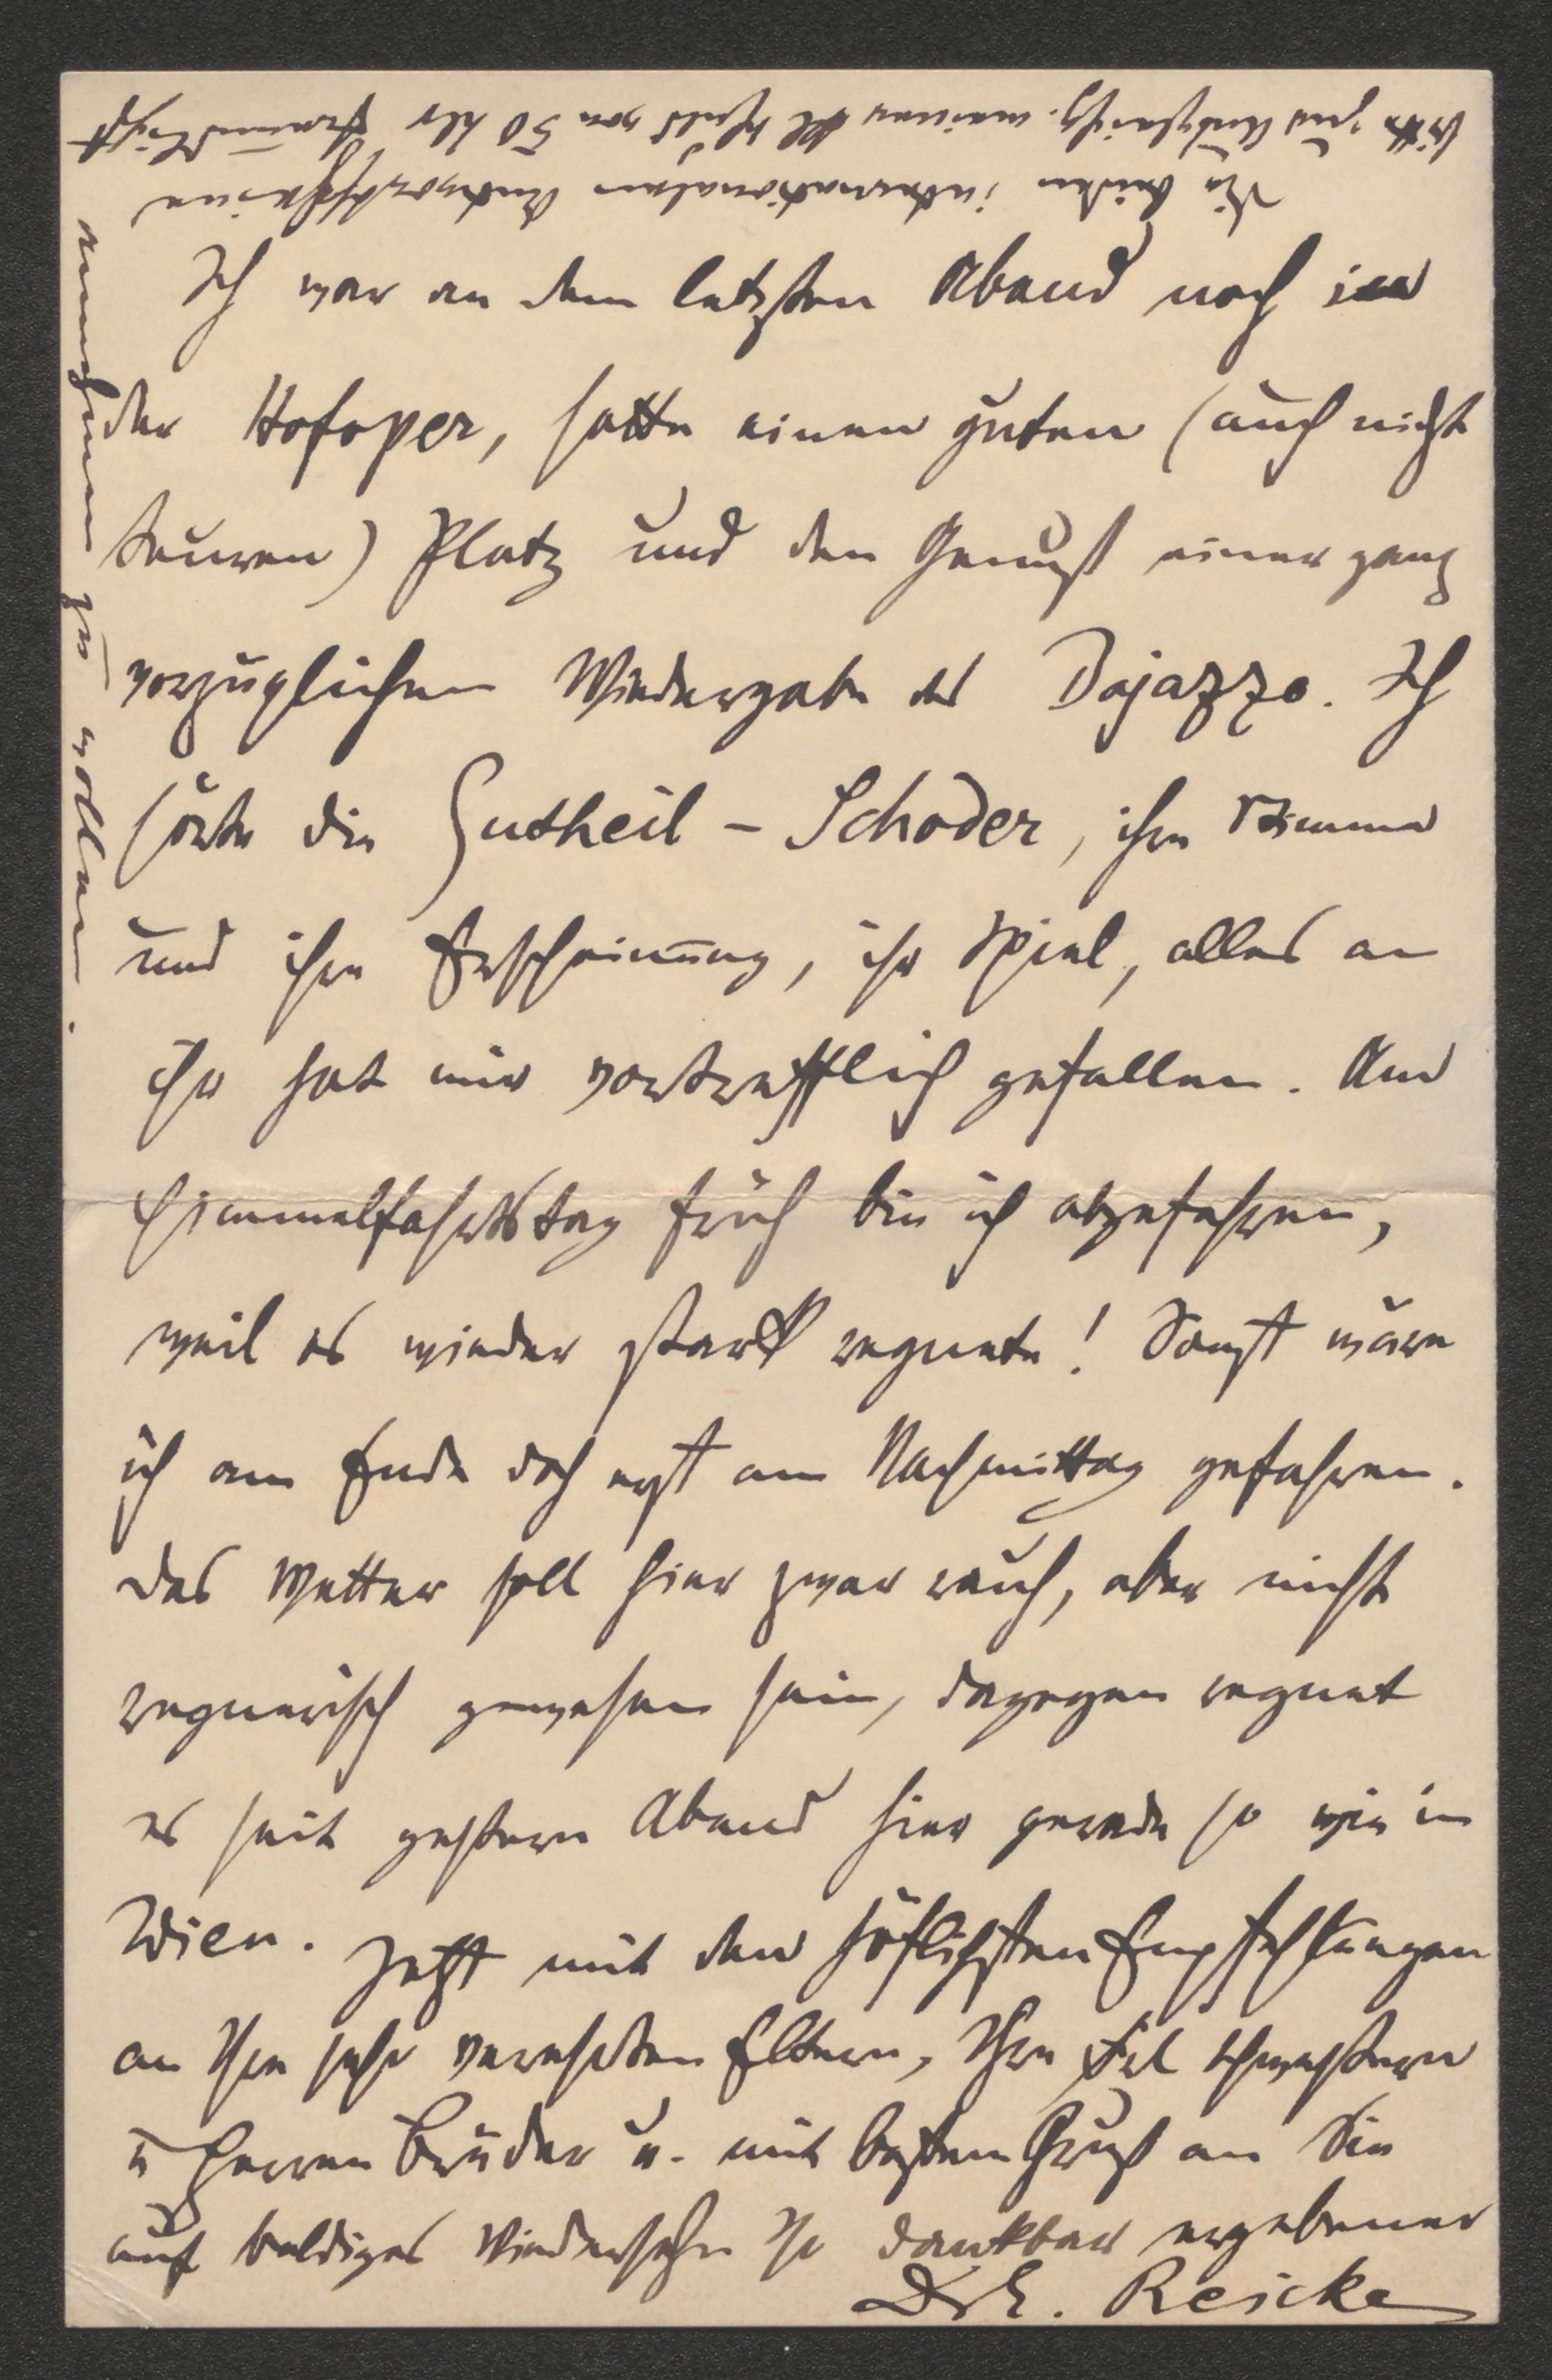 Ich war an dem letzten Abend noch in
der Hofoper, hatte einen guten (auch nicht
teuren) Platz und den Genuß einer ganz
vorzüglichen Wiedergabe des Bajazzo. Ich
hörte die Gutheil-Schoder, ihre Stimme
und ihre Erscheinung, ihr Spiel, alles an
ihr hat mir vortrefflich gefallen. Am
Himmelfahrtstag früh bin ich abgefahren,
weil es wieder stark regnete! Sonst wäre
ich am Ende doch erst am Nachmittag gefahren.
Das Wetter soll hier zwar rauh, aber nicht
regnerisch gewesen sein, dagegen regnet
es seit gestern Abend hier gerade so wie in
Wien. Jetzt mit den höflichsten Empfehlungen
an Ihre sehr verehrten Eltern, Ihre Frl Schwestern
u Herren Brüder u. mit bestem Gruß an Sie
auf baldiges Wiedersehn Ihr dankbar ergebener
Dr E. Reicke
Die beiden internationalen Antwortscheine
bitte zum Ausgleich meiner Schuld von 50 hlr freundlichst
annehmen zu wollen.